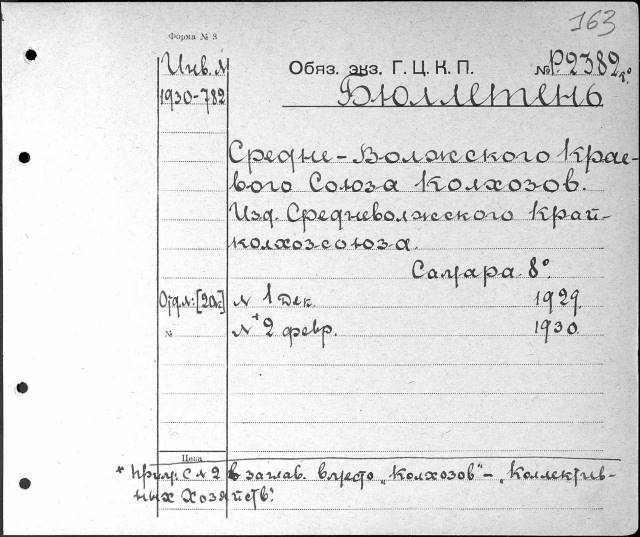 163
Форма № 3
Инв. №
1930-782
Обяз. экз. Г. Ц. К. П.
№ Р.2382
Бюллетень
Средне-Волжского Крае-
вого Союза Колхозов.
Изд. Средневолжского Край-
колхозсоюза.
Самара. 8°.
Отд. м: [20к] № 1 Дек. 1929.
№ № 2 февр. 1930.
Цена
* Прим. С № 2 в заглав. вместо „Колхозов" – „Коллектив-
ных Хозяйств".